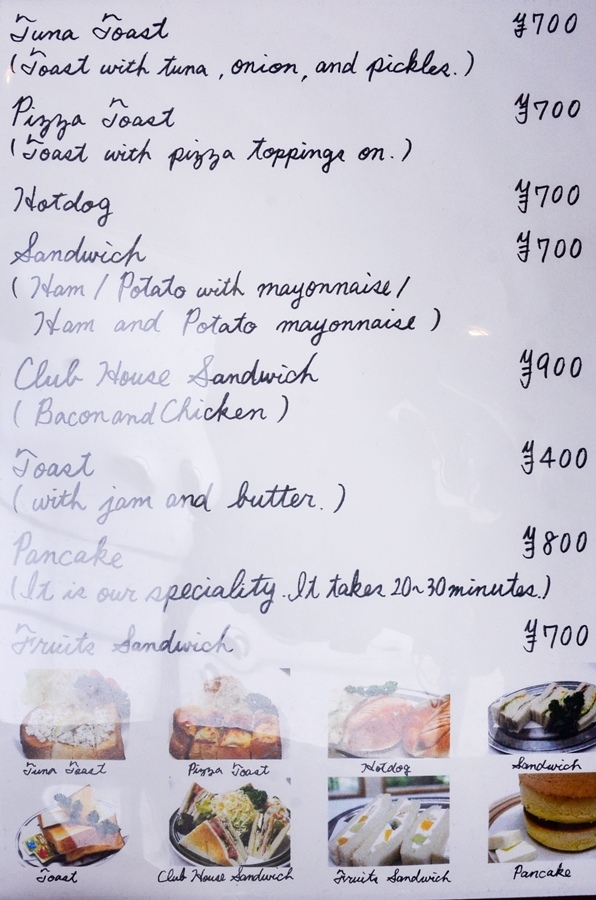 Tuna Toast ¥700
(Toast with tuna, onion, and pickles.)
Pizza Toast ¥700
(Toast with pizza toppings on.)
Hotdog ¥700
Sandwich ¥700
(Ham / Potato with mayonnaise /
Ham and Potato mayonnaise)
Club House Sandwich ¥900
(Bacon and Chicken)
Toast ¥400
(with jam and butter.)
Pancake ¥800
(It is our speciality. It takes 20~30 minutes.)
Fruits Sandwich ¥700
Tuna Toast Pizza Toast Hotdog Sandwich
Toast Club House Sandwich Fruits Sandwich Pancake